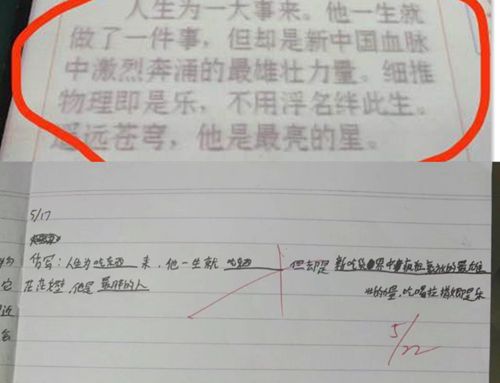 人生为一大事来。他一生就
做了一件事，但却是新中国血脉
中激烈奔涌的最雄壮力量。细推
物理即是乐，不用浮名绊此生。
遥远苍穹，他是最亮的星。
5/17
仿写：人生为吃东西来，他一生就吃东西 但却是新吃货界中最雄
在茫茫，他是最胖的人 壮的力量，吃喝拉撒即是乐
5/22